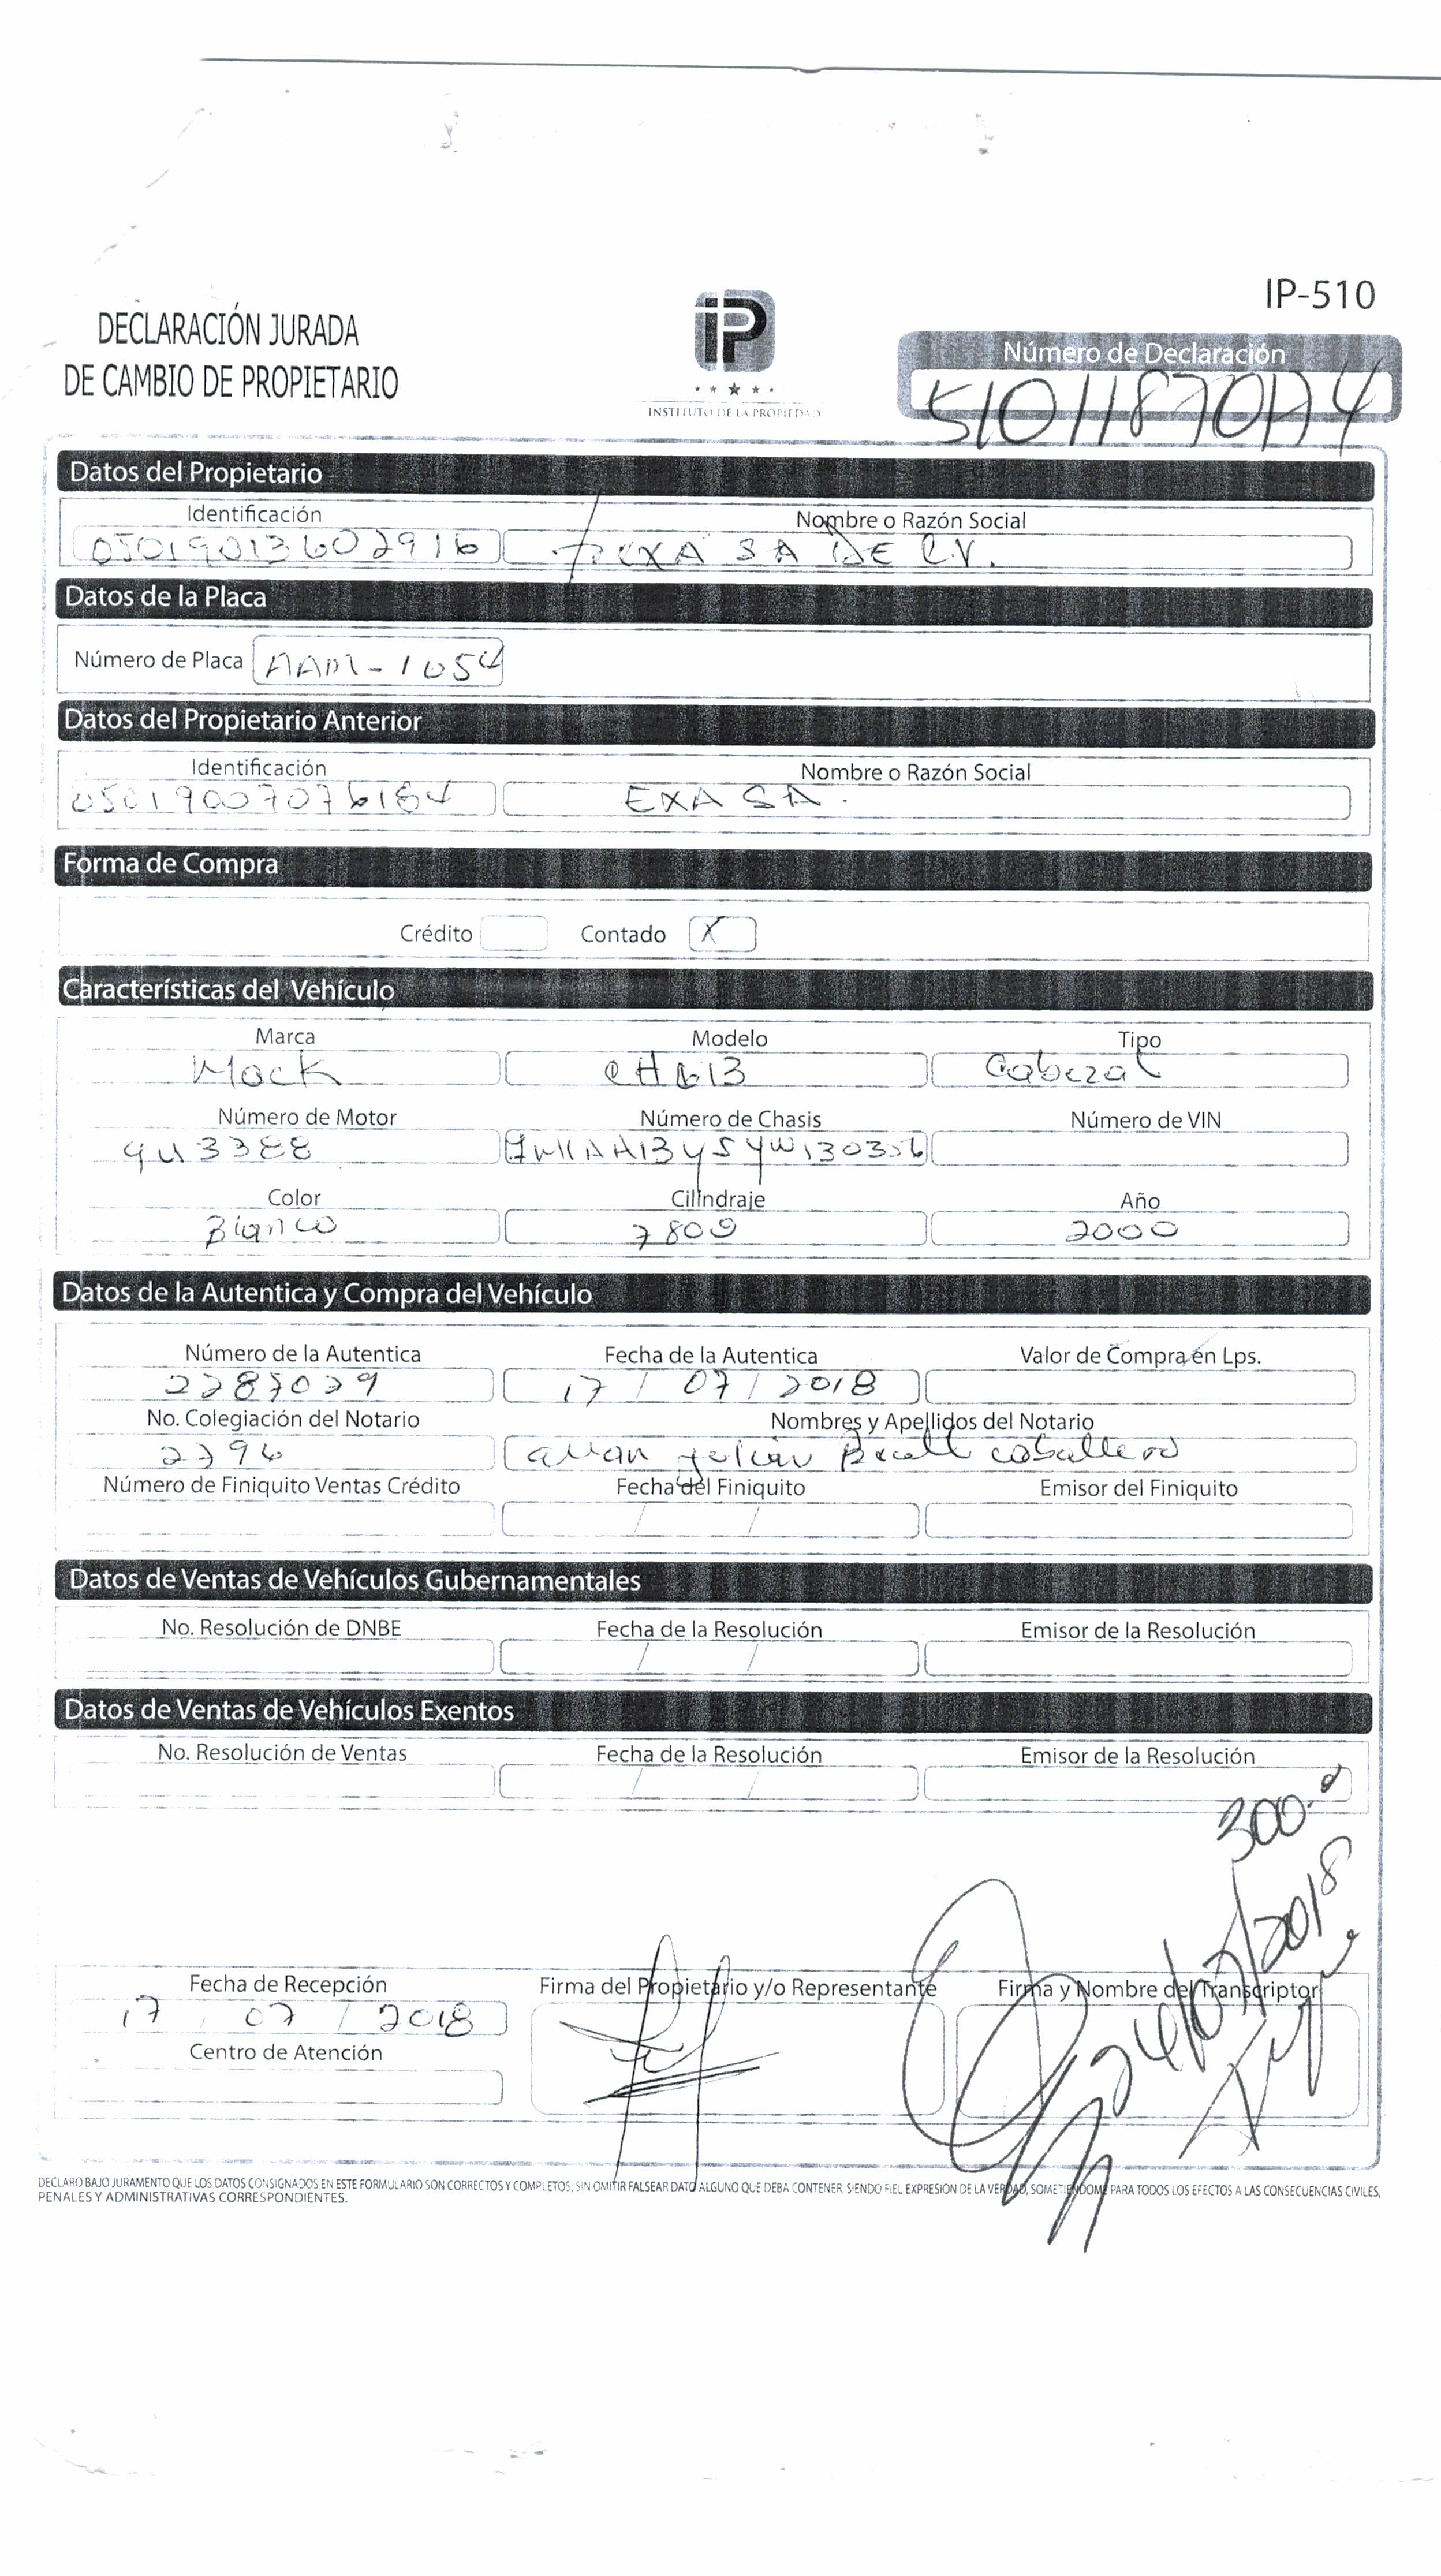 IP-510
DECLARACIÓN JURADA
DE CAMBIO DE PROPIETARIO
iP
INSTITUTO DE LA PROPIEDAD
Número de Declaración
Datos del Propietario
Identificación Nombre o Razón Social
SA DE C.V.
Datos de la Placa
Número de Placa AAM-1054
Datos del Propietario Anterior
Identificación Nombre o Razón Social
05019007076184 EXA SA.
Forma de Compra
Crédito Contado X
Características del Vehículo
Marca Modelo Tipo
Mack CH613 Cabezal
Número de Motor Número de Chasis Número de VIN
Color Cilindraje Año
Blanco 7800 2000
Datos de la Autentica y Compra del Vehículo
Número de la Autentica Fecha de la Autentica Valor de Compra en Lps.
2287029 17 / 07 / 2018
No. Colegiación del Notario Nombres y Apellidos del Notario
2796 Caballero
Número de Finiquito Ventas Crédito Fecha del Finiquito Emisor del Finiquito
/ /
Datos de Ventas de Vehículos Gubernamentales
No. Resolución de DNBE Fecha de la Resolución Emisor de la Resolución
/ /
Datos de Ventas de Vehículos Exentos
No. Resolución de Ventas Fecha de la Resolución Emisor de la Resolución
/ /
300.-
24/07/2018
Fecha de Recepción Firma del Propietario y/o Representante Firma y Nombre del Transcriptor
17 / 07 / 2018
Centro de Atención
DECLARO BAJO JURAMENTO QUE LOS DATOS CONSIGNADOS EN ESTE FORMULARIO SON CORRECTOS Y COMPLETOS, SIN OMITIR FALSEAR DATO ALGUNO QUE DEBA CONTENER, SIENDO FIEL EXPRESION DE LA VERDAD, SOMETIENDOME PARA TODOS LOS EFECTOS A LAS CONSECUENCIAS CIVILES,
PENALES Y ADMINISTRATIVAS CORRESPONDIENTES.